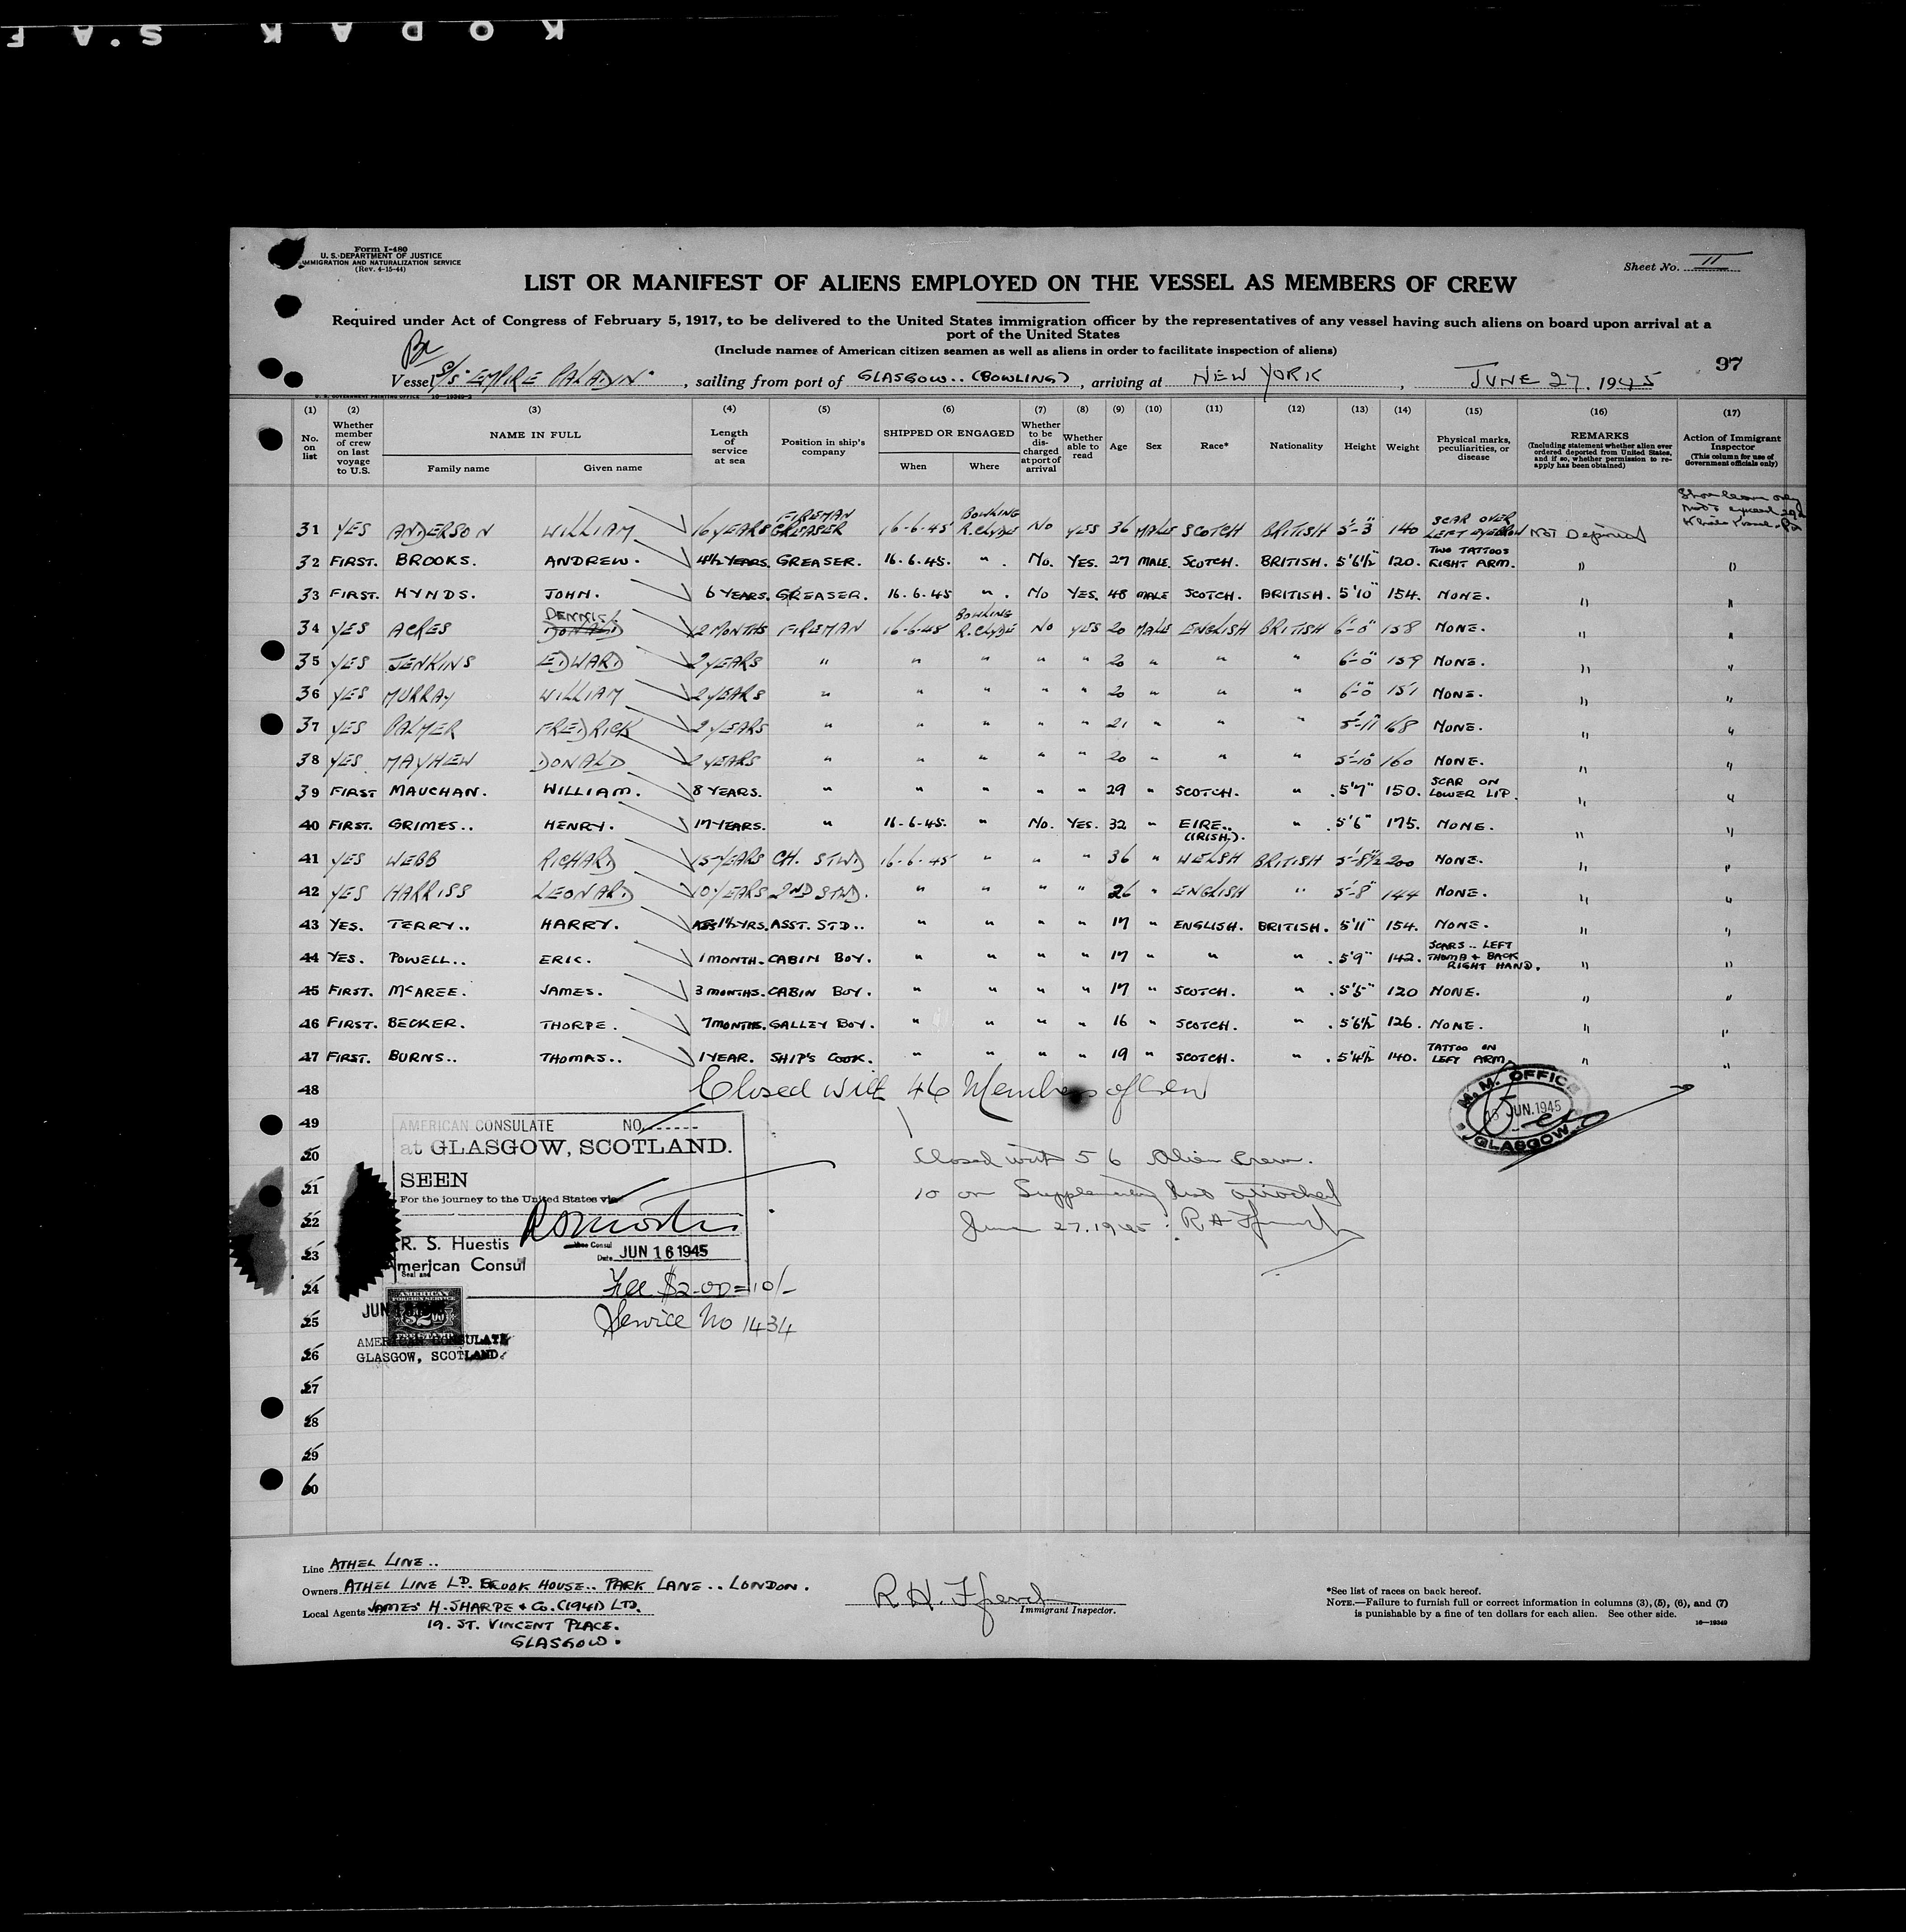 KODAK S.A F
Form I-480
U. S. DEPARTMENT OF JUSTICE
IMMIGRATION AND NATURALIZATION SERVICE
(Rev. 4-15-44)
Sheet No. II
LIST OR MANIFEST OF ALIENS EMPLOYED ON THE VESSEL AS MEMBERS OF CREW
Required under Act of Congress of February 5, 1917, to be delivered to the United States immigration officer by the representatives of any vessel having such aliens on board upon arrival at a
port of the United States
(Include names of American citizen seamen as well as aliens in order to facilitate inspection of aliens)
Br
97
Vessel S/S "EMPIRE PALADIN", sailing from port of GLASGOW.. (BOWLING), arriving at NEW YORK, JUNE 27. 1945
U. S. GOVERNMENT PRINTING OFFICE 16—19349-2
(1) (2) (3) (4) (5) (6) (7) (8) (9) (10) (11) (12) (13) (14) (15) (16) (17)
No. on list
Whether member of crew on last voyage to U.S.
NAME IN FULL
Family name
Given name
Length of service at sea
Position in ship's company
SHIPPED OR ENGAGED
When
Where
Whether to be discharged at port of arrival
Whether able to read
Age
Sex
Race*
Nationality
Height
Weight
Physical marks, peculiarities, or disease
REMARKS
(Including statement whether alien ever ordered deported from United States, and if so, whether permission to re-apply has been obtained)
Action of Immigrant Inspector
(This column for use of Government officials only)
Shore leave only
not to exceed 29 d
while vessel in Pt
31 YES ANDERSON WILLIAM 16 YEARS FIREMAN GREASER 16-6-45 BOWLING R. CLYDE NO YES 36 MALE SCOTCH BRITISH 5'-3" 140 SCAR OVER LEFT EYEBROW NOT Deported
32 FIRST. BROOKS. ANDREW. 4½ YEARS. GREASER. 16.6.45. " . NO. YES. 27 MALE. SCOTCH. BRITISH. 5'6½" 120. TWO TATTOOS RIGHT ARM. " "
33 FIRST. HYNDS. JOHN. 6 YEARS. GREASER. 16.6.45 " . NO YES. 48 MALE SCOTCH. BRITISH. 5'10" 154. NONE. " "
34 YES ACRES DENNIS DONALD 12 MONTHS FIREMAN 16-6-45 BOWLING R. CLYDE NO YES 20 MALE ENGLISH BRITISH 6'-0" 158 NONE. " "
35 YES JENKINS EDWARD 2 YEARS " " " " " 20 " " " 6'-0" 159 NONE. " "
36 YES MURRAY WILLIAM 2 YEARS " " " " " 20 " " " 6'-0" 151 NONE. " "
37 YES PALMER FREDRICK 2 YEARS " " " " " 21 " " " 5'-11" 168 NONE. " "
38 YES. MAYHEW DONALD 2 YEARS " " " " " 20 " " " 5'-10" 160 NONE. " "
39 FIRST MAUCHAN. WILLIAM. 8 YEARS. " " " " " 29 " SCOTCH. " . 5'7" 150. SCAR ON LOWER LIP. " "
40 FIRST. GRIMES.. HENRY. 17 YEARS. " 16-6-45. " NO. YES. 32 " EIRE.. (IRISH.). " . 5'6" 175. NONE. " "
41 YES WEBB RICHARD 15 YEARS CH. STWD 16-6-45 " " " 36 " WELSH BRITISH 5'-8½" 200 NONE. " "
42 YES HARRISS LEONARD 10 YEARS 2ND STWD. " " " " 26 " ENGLISH " 5'-8" 144 NONE. " "
43 YES. TERRY.. HARRY. 1½ YRS. ASST. STD.. " " " " 17 " ENGLISH. BRITISH. 5'11" 154. NONE. " "
44 YES. POWELL.. ERIC. 1 MONTH. CABIN BOY. " " " " 17 " " " . 5'9" 142. SCARS.. LEFT THUMB & BACK RIGHT HAND. " "
45 FIRST. McAREE. JAMES. 3 MONTHS. CABIN BOY. " " " " 17 " SCOTCH. " . 5'5" 120 NONE. " "
46 FIRST. BECKER. THORPE. 7 MONTHS. GALLEY BOY. " " " " 16 " SCOTCH. " . 5'6½" 126. NONE. " "
47 FIRST. BURNS.. THOMAS.. 1 YEAR. SHIP'S COOK. " " " " 19 " SCOTCH. " . 5'4½" 140. TATTOO ON LEFT ARM. " "
48 Closed with 46 Members of Crew
M. M. OFFICE
JUN. 1945
GLASGOW
49
AMERICAN CONSULATE NO.
at GLASGOW, SCOTLAND.
20
Closed with 56 Alien Crew.
SEEN
21
10 on Supplementary list attached
For the journey to the United States via
22
June 27. 1945 : R H Ffrench
R. S. Huestis
Vice Consul
23
Date JUN 16 1945
American Consul
Seal and
24
Fee $2.00 = 10/-
AMERICAN FOREIGN SERVICE
$2.00
FEE STAMP
25
Service No 1434
AMERICAN CONSULATE
26
GLASGOW, SCOTLAND.
27
28
29
60
Line ATHEL LINE..
Owners ATHEL LINE LD. BROOK HOUSE.. PARK LANE.. LONDON.
Local Agents JAMES H. SHARPE & Co. (1941) LTD.
19. ST. VINCENT PLACE.
GLASGOW.
R. H. Ffrench
Immigrant Inspector.
*See list of races on back hereof.
NOTE.—Failure to furnish full or correct information in columns (3), (5), (6), and (7)
is punishable by a fine of ten dollars for each alien. See other side.
16—19349